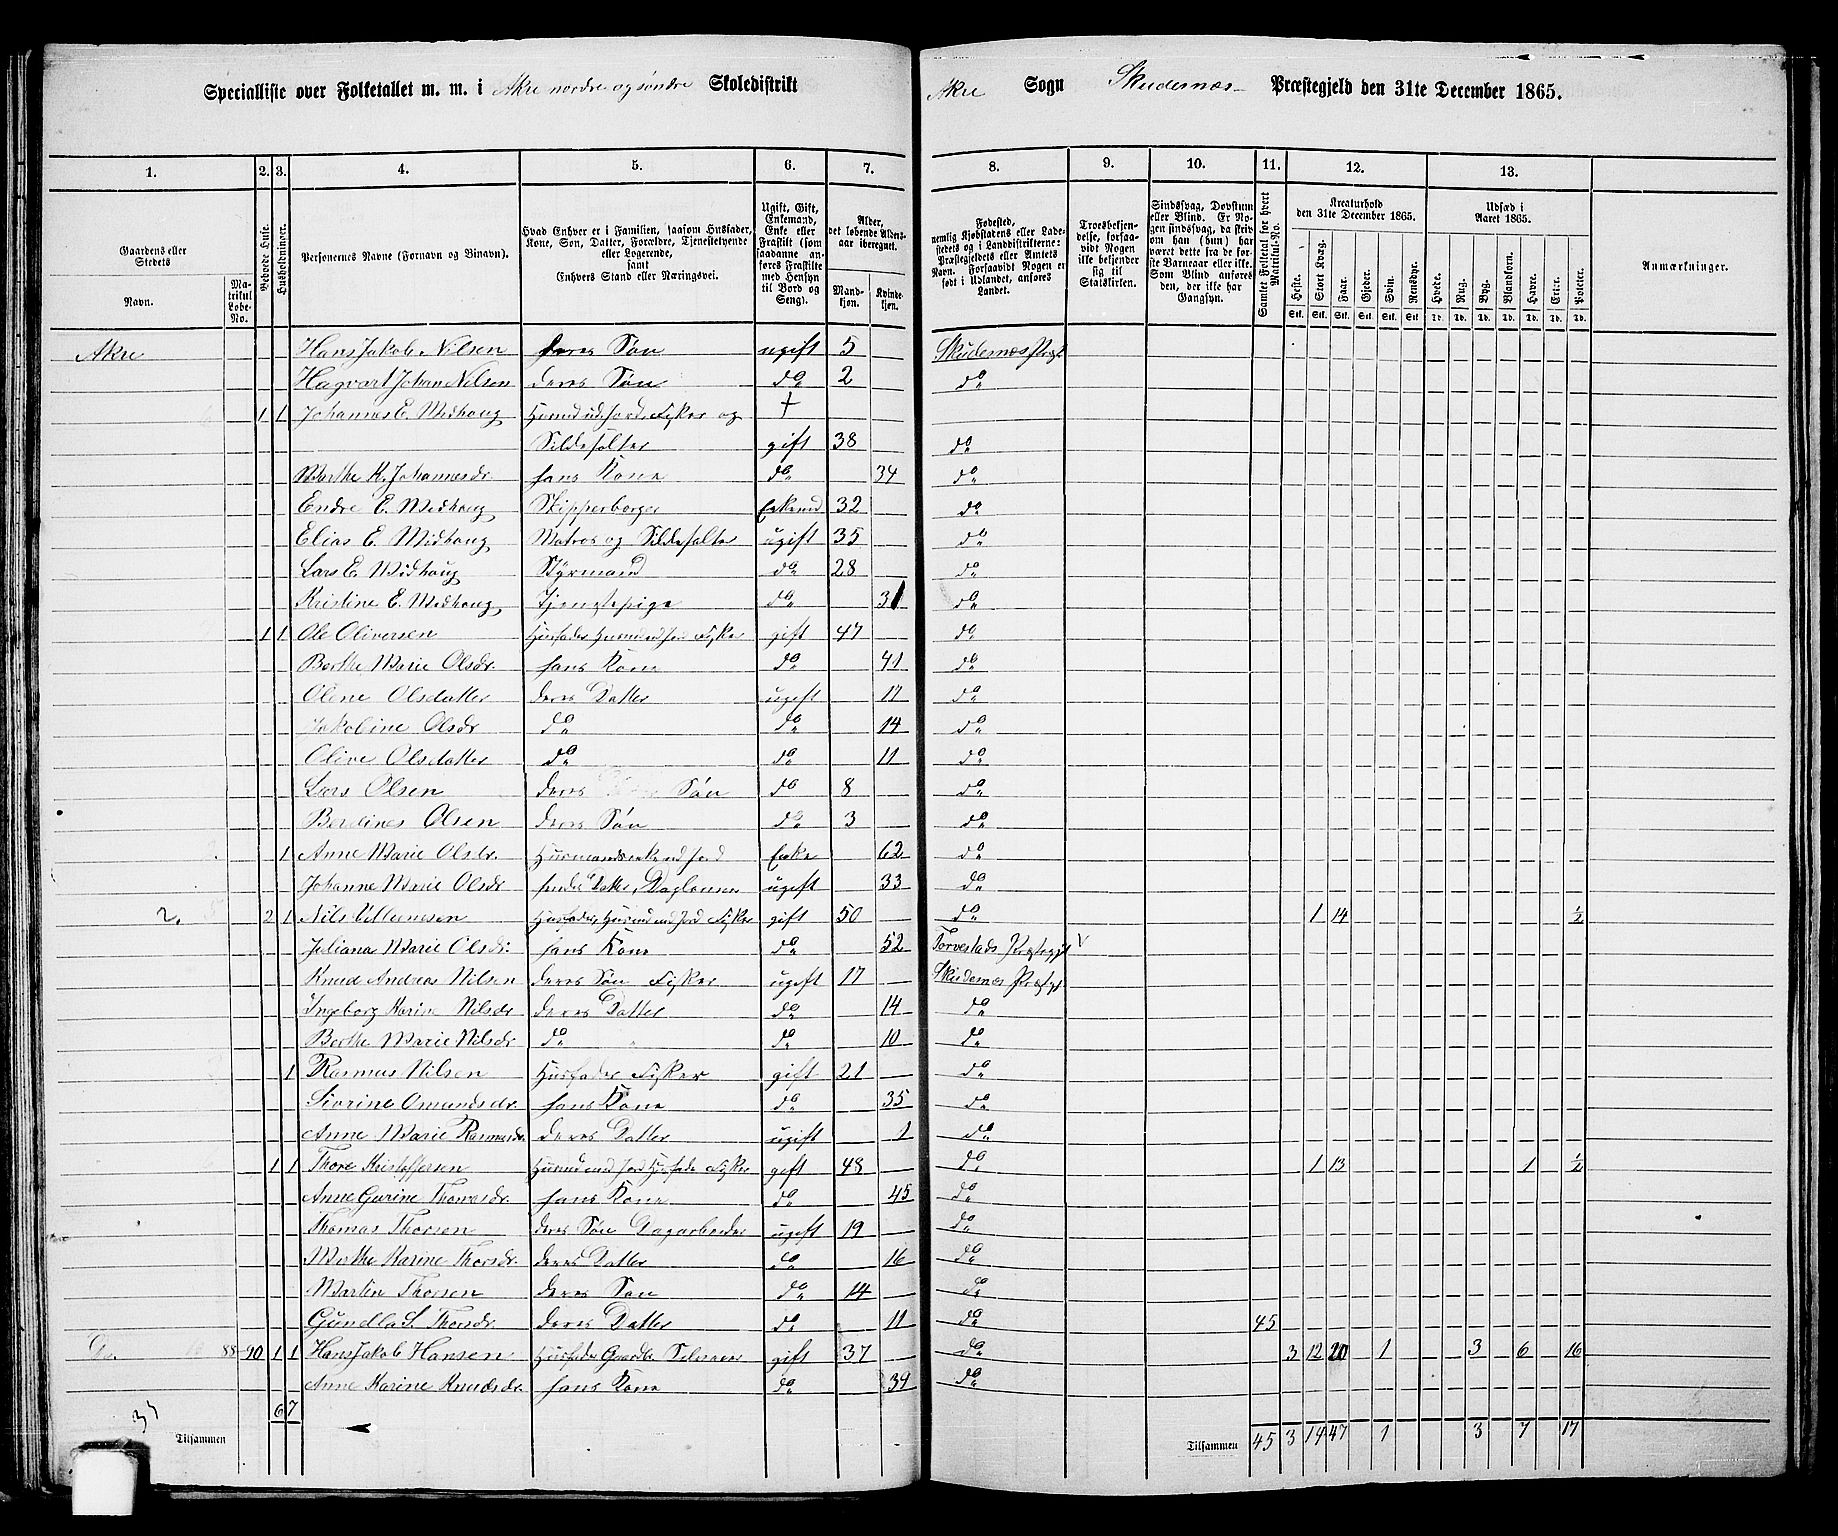 Speciallifte over Folketallet m. m. i Akre nordre og søndre Skoledistrikt
Akre Sogn Skudenæs Præstegjeld den 31te December 1865.
1. 2. 3. 4. 5. 6. 7. 8. 9. 10. 11. 12. 13.
Gaardens eller Stedets Navn. Matrikul Løbe-No.
Beboede Huse.
Husholdninger.
Personernes Navne (Fornavn og Binavn).
Hvad Enhver er i Familien, saasom Husfader, Kone, Søn, Datter, Forældre, Tjenestetyende eller Logerende, samt Enhvers Stand eller Næringsvei.
Ugift, Gift, Enkemand, Enke eller Fraskilt (som saadanne anføres Fraskilte med Hensyn til Bord og Seng).
Alder, det løbende Aldersaar iberegnet. Mandkjøn. Kvindekjøn.
Fødested, nemlig Kjøbstadens eller Ladestedets og i Landdistrikterne: Præstegjeldets eller Amtets Navn. Forsaavidt Nogen er født i Udlandet, anføres Landet.
Troesbekjendelse, forsaavidt Nogen ikke bekjender sig til Statskirken.
Sindssvag, Døvstum eller Blind. Er Nogen sindssvag, da skrives om han (hun) har været dette fra de første Barneaar eller ikke. Som Blind anføres den, der ikke har Gangsyn.
Samlet Folketal for hvert Matrikul-No.
Kreaturhold den 31te December 1865. Heste. Stort Kvæg. Faar. Gjeder. Svin. Rensdyr.
Udsæd i Aaret 1865. Hvede. Rug. Byg. Blandkorn. Havre. Erter. Poteter.
Anmærkninger.
Akre Hans Jakob Nilsen deres Søn ugift 5 Skudenæs Prgt
Hagvart Johan Nilsen deres Søn do 2 do
1 1 Johannes E. Medhaug Husmd ud Jord, Fisker og
Sildesalter gift 38 do
Marthe K. Johannesdr hans Kone do 34 do
Endre E. Medhaug Skipperborger Enkemd 32 do
Elias E. Midhaug Matros og Sildesalter ugift 35 do
Lars E. Midhaug Styrmand do 28 do
Kristine E. Medhaug Tjenstepige do 31 do
1 1 Ole Oliversen Husfader Husmd md Jord Fisker gift 47 do
Berthe Marie Olsdr. hans Kone do 41 do
Oline Olsdatter deres Datter ugift 17 do
Jakobine Olsdr do do 14 do
Olive Olsdatter do do 11 do
Lars Olsen deres Søn do 8 do
Berdines Olsen deres Søn do 3 do
1 Anne Marie Olsdr. Husmandsenke md Jord Enke 62 do
Johanne Marie Olsdr hendes Datter, Daglønner ugift 33 do
2. 2 1 Nils Villumsen Husfader, Husmd md Jord Fisker gift 50 do 1 14 ½
Juliana Marie Olsdr. hans Kone do 52 Torvestads Præstegjl
Knud Andreas Nilsen deres Søn Fisker ugift 17 Skudenæs Præstgj
Ingeborg Karine Nilsdr deres Datter do 14 do
Berthe Marie Nilsdr do do 10 do
1 Rasmus Nilsen Husfader Fisker gift 21 do
Siorine Omundsdr. hans Kone do 35 do
Anne Marie Rasmusdr. deres Datter ugift 1 do
1 1 Thore Kristoffersen Husmd md Jord Husfader Fisker gift 48 do 1 13 1 ½
Anne Gurine Thomasdr. hans Kone do 45 do
Thomas Thorsen deres Søn Dagarbeider ugift 19 do
Merthe Karine Thorsdr. deres Datter do 16 do
Martin Thorsen deres Søn do 14 do
Gundla S. Thorsdr. deres Datter do 11 do 45
Do. 88-90 1 1 Hans Jakob Hansen Husfader Gaardbr. Seleier gift 37 do 3 12 20 1 3 6 16
Anne Karine Knudsdr. hans Kone do 39 do
6 7
Tilsammen
Tilsammen 45 3 14 47 1 3 7 17